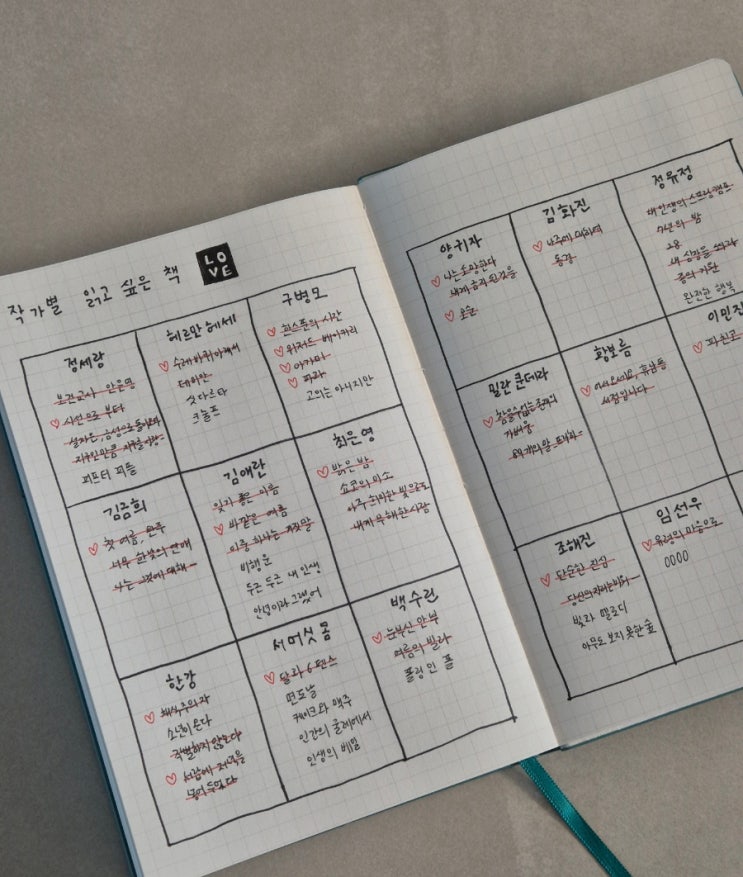 작가별 읽고 싶은 책
LO
VE
정세랑
보건교사 안은영
시선으로부터
지구인만큼 지구를 사랑
피프티 피플
헤르만 헤세
수레바퀴 아래서
데미안
싯다르타
크눌프
구병모
한 스푼의 시간
위저드 베이커리
아가미
파과
고의는 아니지만
김금희
첫 여름, 완주
너무 한낮의 연애
나는 그것에 대해
김애란
잊기 좋은 이름
바깥은 여름
이중 하나는 거짓말
비행운
두근 두근 내 인생
안녕이라 그랬어
최은영
밝은 밤
쇼코의 미소
아주 희미한 빛으로도
내게 무해한 사람
한강
채식주의자
소년이 온다
작별하지 않는다
서랍에 저녁을
넣어 두었다
서머싯 몸
달과 6펜스
면도날
케이크와 맥주
인간의 굴레에서
인생의 베일
백수린
눈부신 안부
여름의 빌라
폴링 인 폴
양귀자
나는 소망한다
내게 금지된 것을
모순
김화진
나주에 대하여
동경
정유정
내 인생의 스프링캠프
7년의 밤
28
내 심장을 쏴라
종의 기원
완전한 행복
밀란 쿤데라
참을 수 없는 존재의
가벼움
황보름
어서 오세요, 휴남동
서점입니다
이민진
파친코
조해진
단순한 진심
빛과 멜로디
아무도 보지 못한 숲
임선우
유령의 마음으로
0000